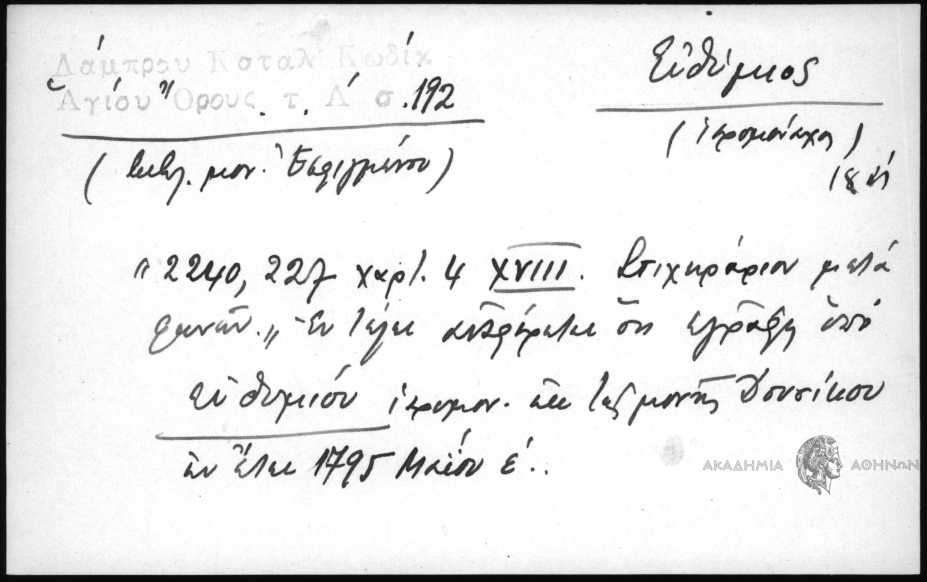 Λάμπρου Καταλ Κωδίκ
Ἁγίου Ὄρους τ. Α' σ. 192
(Βιβλ. μον. Ἐσφιγμένου)
Εὐθύμιος
(ἱερομόναχος)
18
"2240, 227 χαρτ. 4 XVIII. Στιχηράριον μετὰ
φωνῶν." Ἐν τέλει ἀναφέρεται ὅτι ἐγράφη ὑπὸ
Εὐθυμίου ἱερομον. ἐκ τῆς μονῆς Δουσίκου
ἐν ἔτει 1795 Μαΐου ε'..
ΑΚΑΔΗΜΙΑ ΑΘΗΝΩΝ